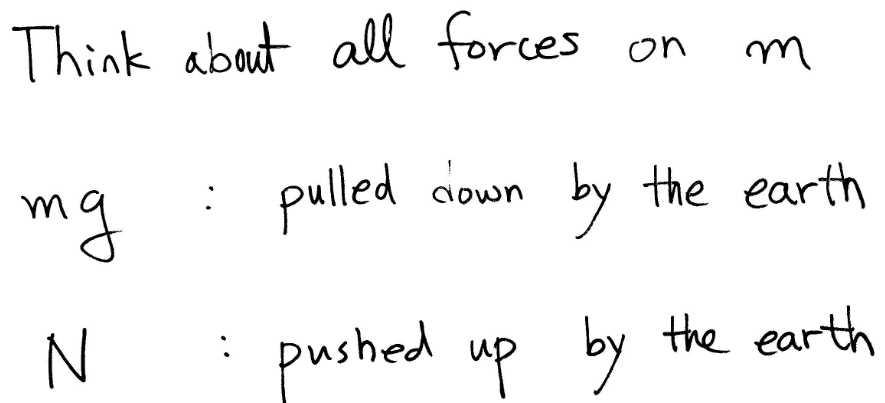 Think about all forces on m
mg : pulled down by the earth
N : pushed up by the earth